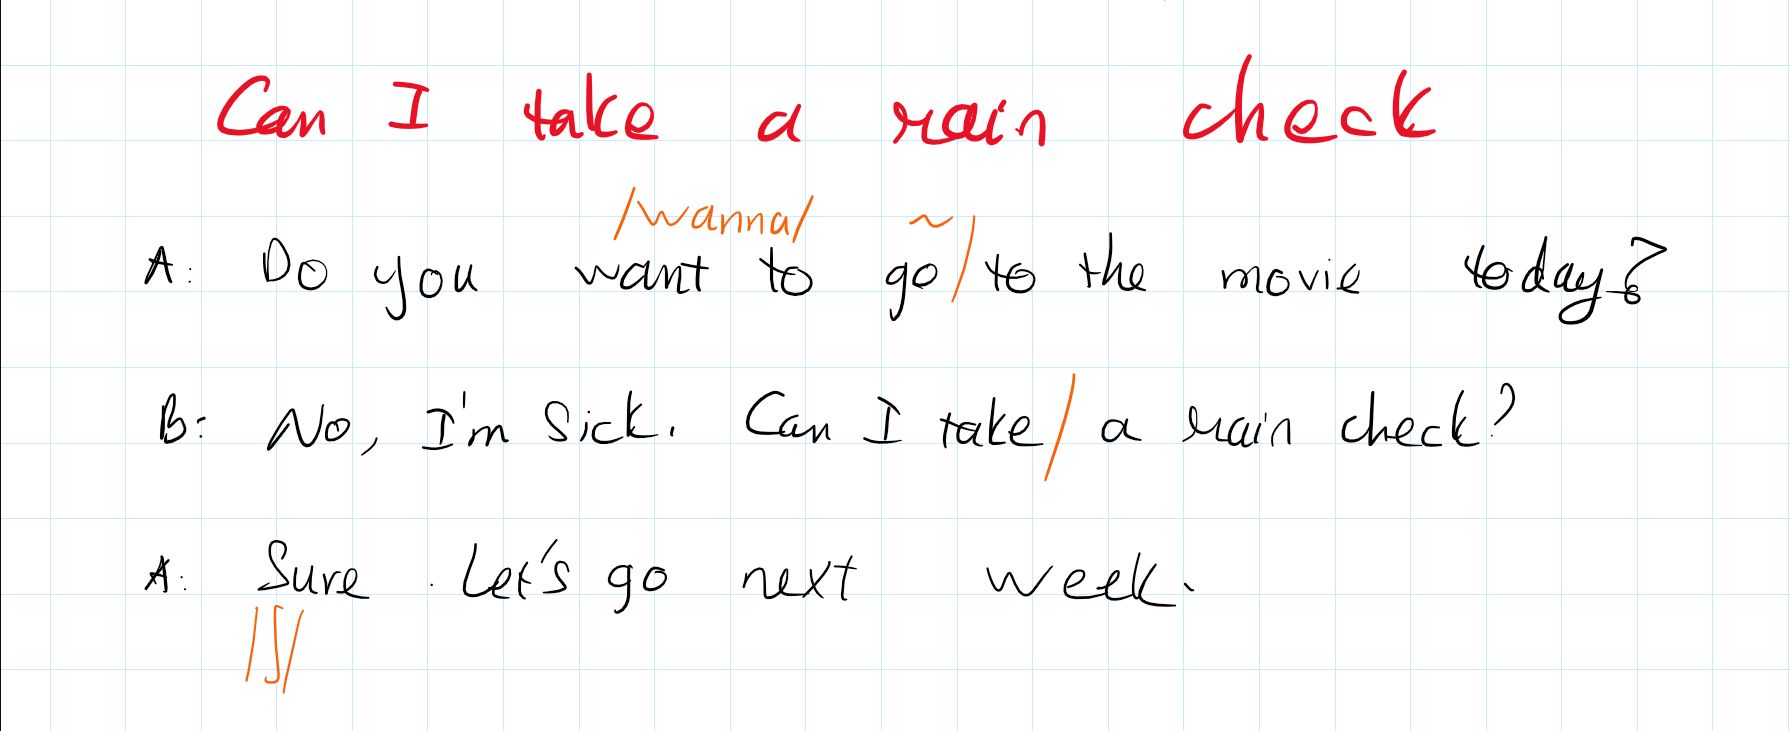 Can I take a rain check
/wanna/ ~
A: Do you want to go / to the movie today?
B: No, I'm sick. Can I take / a rain check?
A: Sure. Let's go next week.
/ʃ/